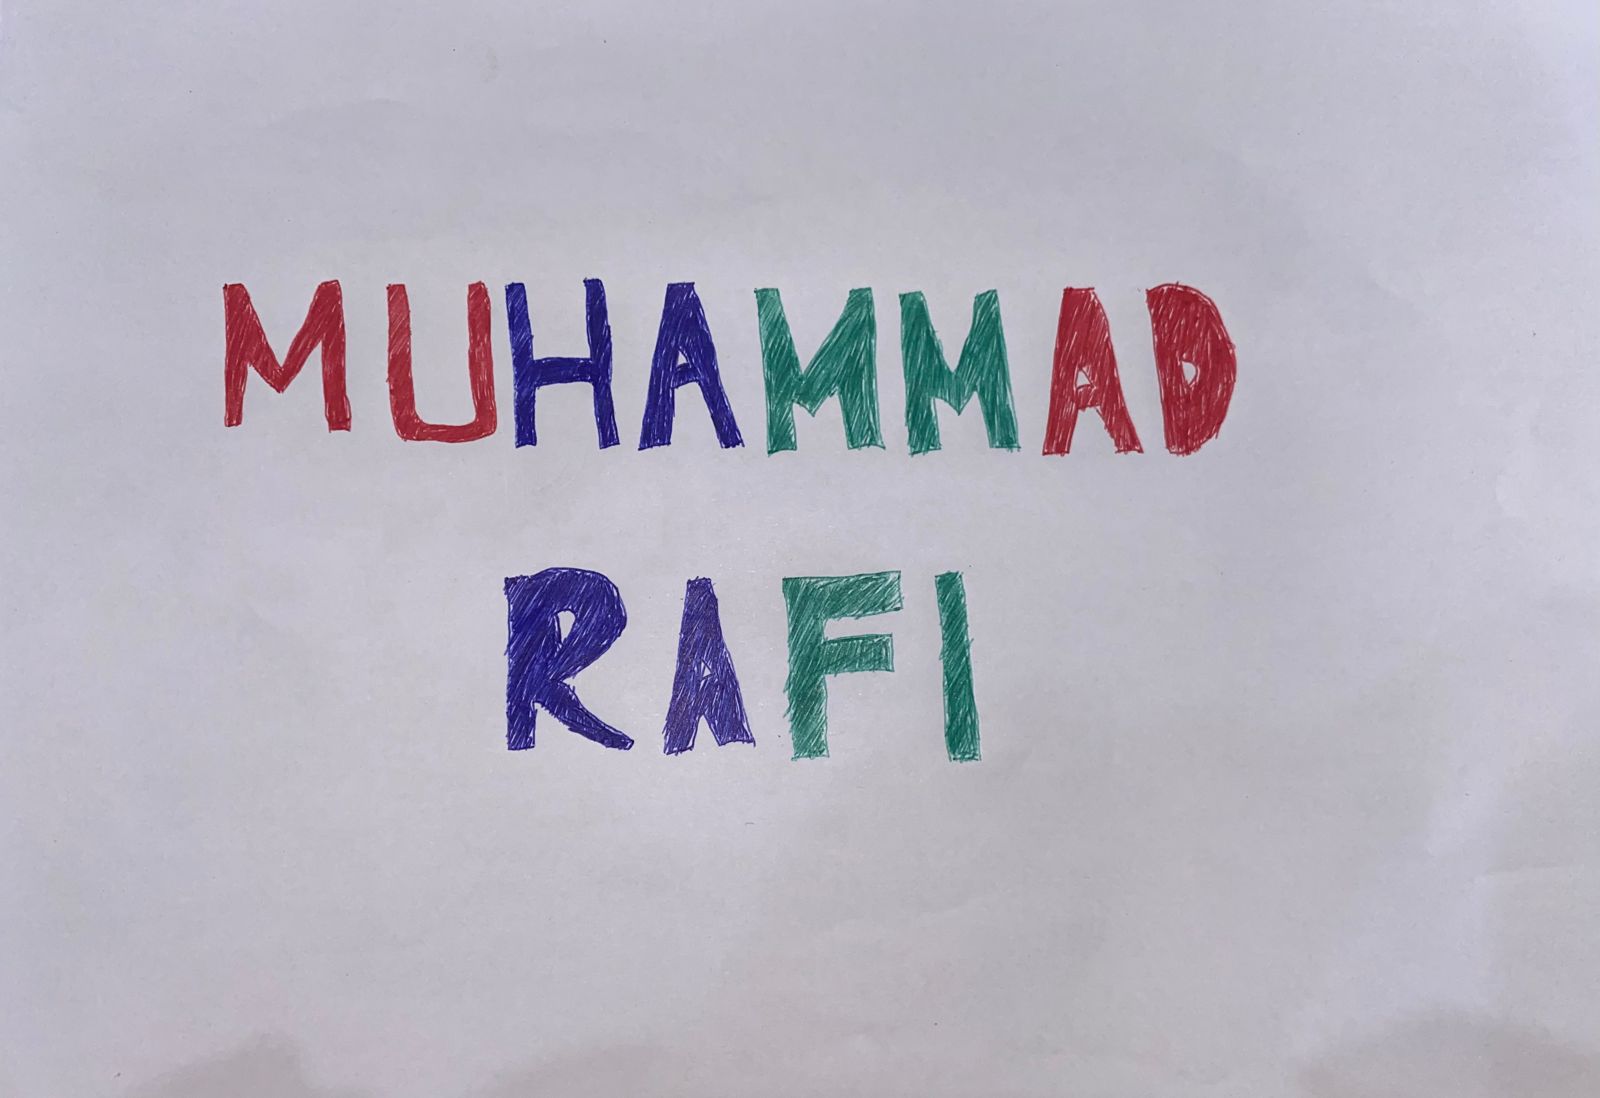 MUHAMMAD
RAFI